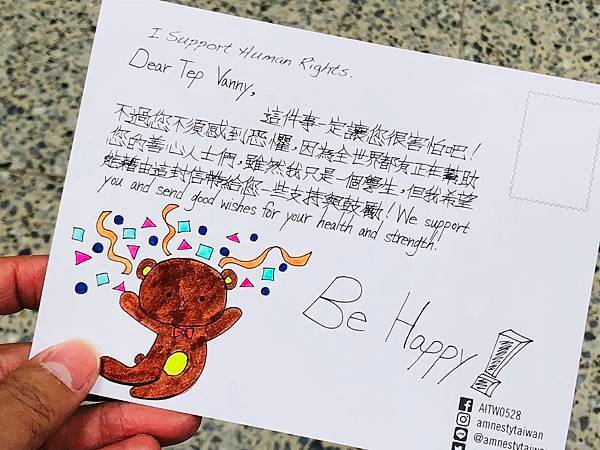 I Support Human Rights.
Dear Tep Vanny,
這件事一定讓您很害怕吧！
不過您不須感到恐懼，因為全世界都有正在幫助
您的善心人士們，雖然我只是一個學生，但我希望
能藉由這封信帶給您一些支持與鼓勵！We support
you and send good wishes for your health and strength.
Be Happy!
AITW0528
amnestytaiwan
@amnestytaiwan